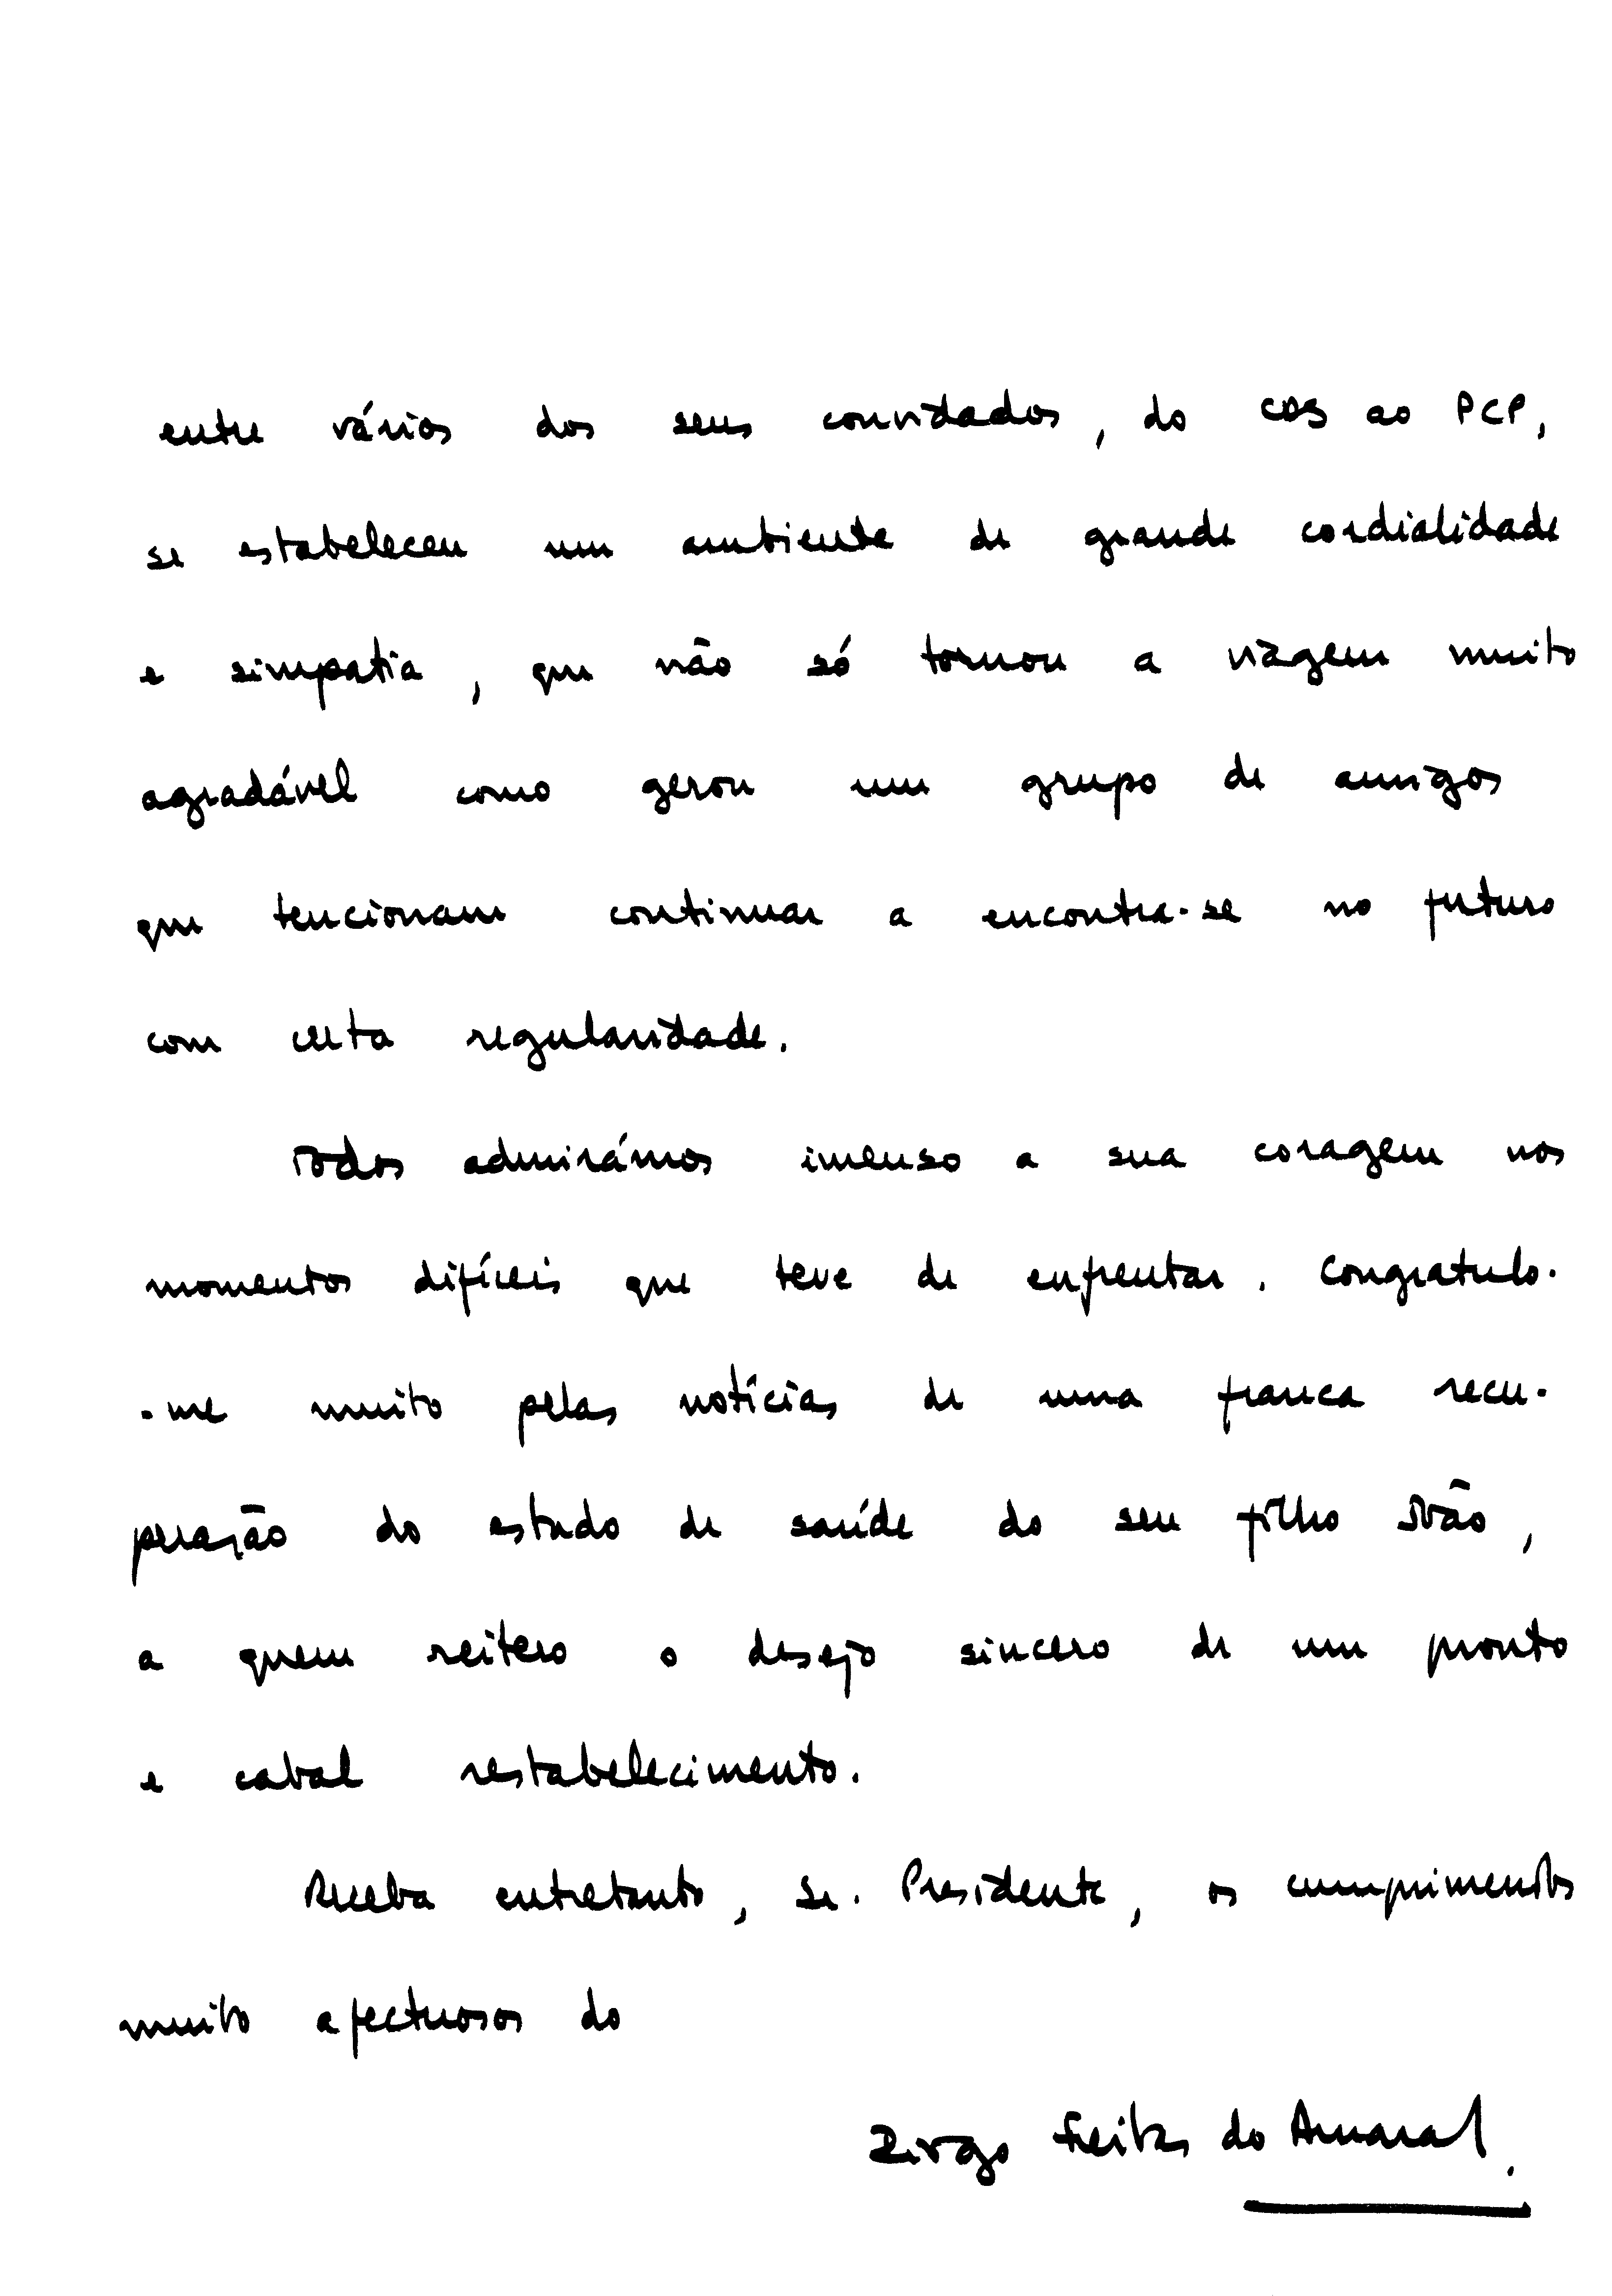 entre vários dos seus convidados, do CDS ao PCP,
se estabeleceu um ambiente de grande cordialidade
e simpatia, que não só tornou a viagem muito
agradável como gerou um grupo de amigos
que tencionam continuar a encontrar-se no futuro
com certa regularidade.
Todos admirámos imenso a sua coragem nos
momentos difíceis que teve de enfrentar. Congratulo-
-me muito pelas notícias de uma franca recu-
peração do estado de saúde do seu filho João,
a quem reitero o desejo sincero de um pronto
e cabal restabelecimento.
Receba entretanto, Sr. Presidente, os cumprimentos
muito afectuosos do
Diogo Freitas do Amaral.